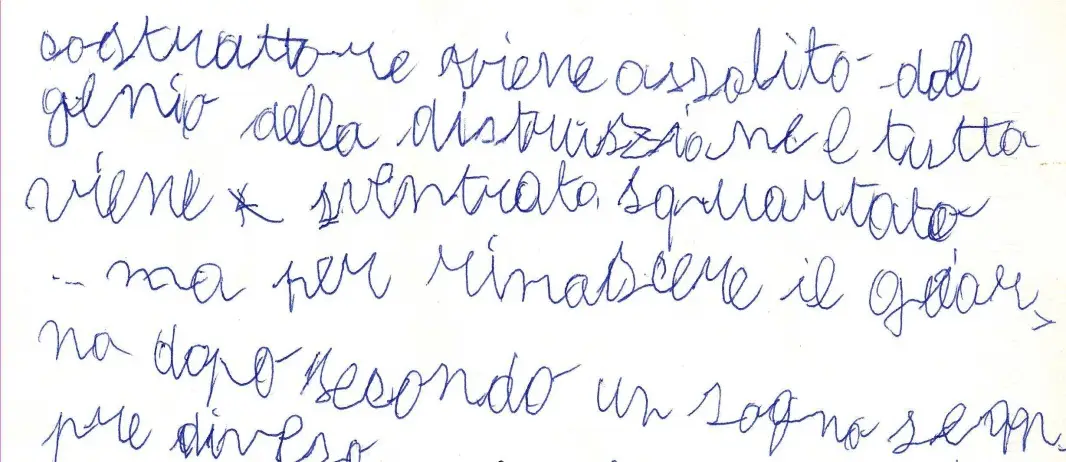 costruttore viene assalito dal
genio della distruszione e tutto
viene sventrato, squartato
... ma per rinascere il gior-
no dopo secondo un sogno sem-
pre diverso